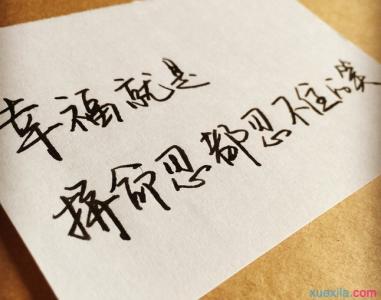 幸福就是
拼命忍都忍不住的笑
xuexila.com